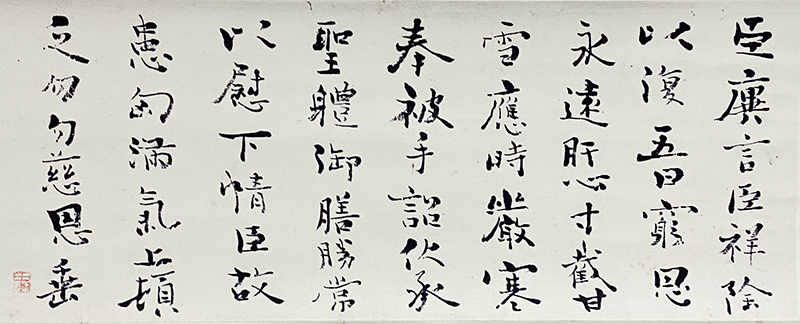 臣廙言臣祥除
以復五日窮思
永遠肝心寸截甘
雪應時嚴寒
奉被手詔伏承
聖體御膳勝常
以慰下情臣故
患匈滿氣上頓
乏勿勿慈恩垂